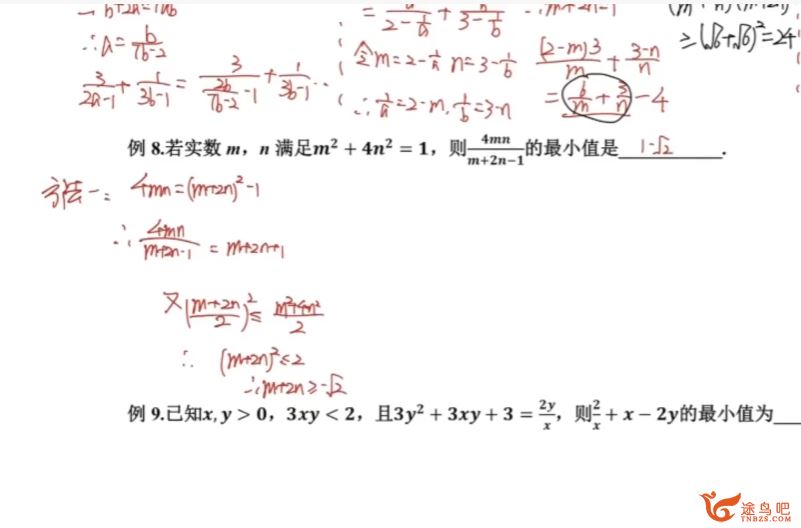 ∴a=b/(7b-2)
3/(2a-1)+1/(3b-1)=3/(2b/(7b-2)-1)+1/(3b-1)..
令m=2-1/a n=3-1/b
∴1/a=2-m,1/b=3-n
(2-m)3/m+(3-n)/n
=6/m+3/n-4
≥(√6+√6)²=24
例 8.若实数 m，n 满足m²+4n²=1，则4mn/(m+2n-1)的最小值是1-√2.
方法一: 4mn=(m+2n)²-1
∴4mn/(m+2n-1)=m+2n+1
又((m+2n)/2)²≤(m²+4n²)/2
∴ (m+2n)²≤2
∴m+2n≥-√2
例 9.已知x,y>0，3xy<2，且3y²+3xy+3=2y/x，则2/x+x-2y的最小值为___
途鸟吧
TNBZS.COM